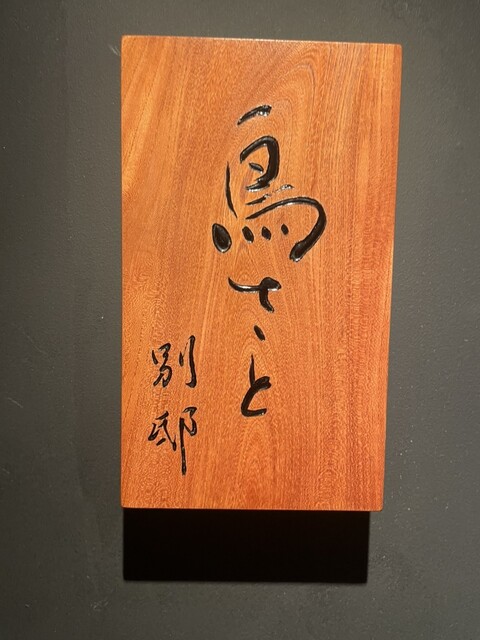 鳥さと
別邸